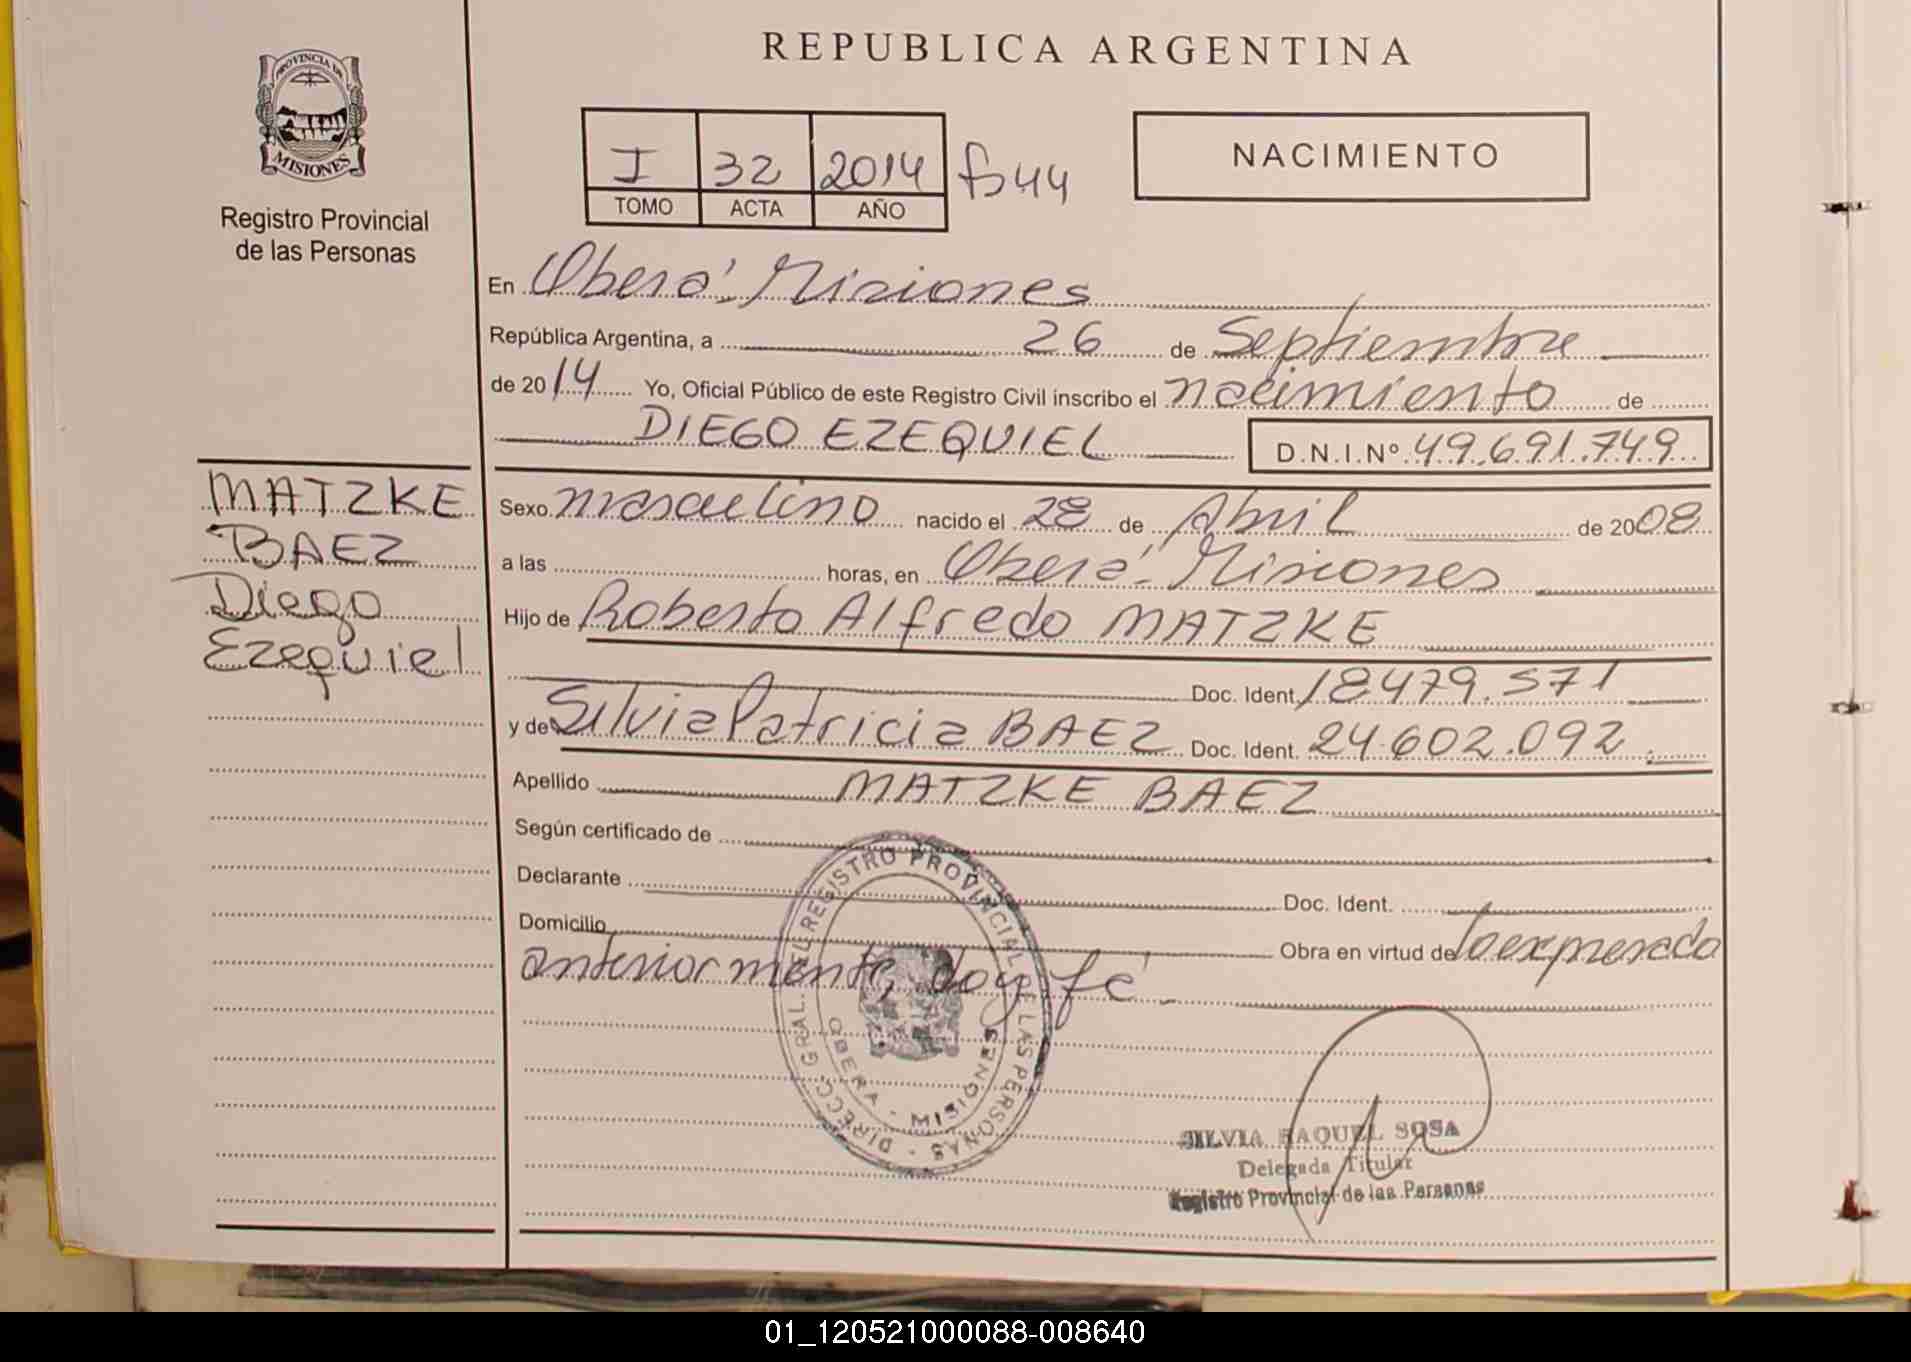 REPUBLICA ARGENTINA
PROVINCIA DE
MISIONES
Registro Provincial
de las Personas
I 32 2014 f° 44
TOMO ACTA AÑO
NACIMIENTO
En Oberá - Misiones
República Argentina, a 26 de Septiembre
de 2014 Yo, Oficial Público de este Registro Civil inscribo el nacimiento de
DIEGO EZEQUIEL D.N.I.Nº 49.691.749
MATZKE
BAEZ
Diego
Ezequiel
Sexo masculino nacido el 28 de Abril de 2008
a las horas, en Oberá - Misiones
Hijo de Roberto Alfredo MATZKE
Doc. Ident. 18479.571
y de Silvia Patricia BAEZ Doc. Ident. 24.602.092
Apellido MATZKE BAEZ
Según certificado de
Declarante Doc. Ident.
Domicilio Obra en virtud de lo expresado
anteriormente, doy fé.
DIRECC. GRAL. DEL REGISTRO PROVINCIAL DE LAS PERSONAS
OBERA - MISIONES
SILVIA RAQUEL SOSA
Delegada Titular
Registro Provincial de las Personas
01_120521000088-008640